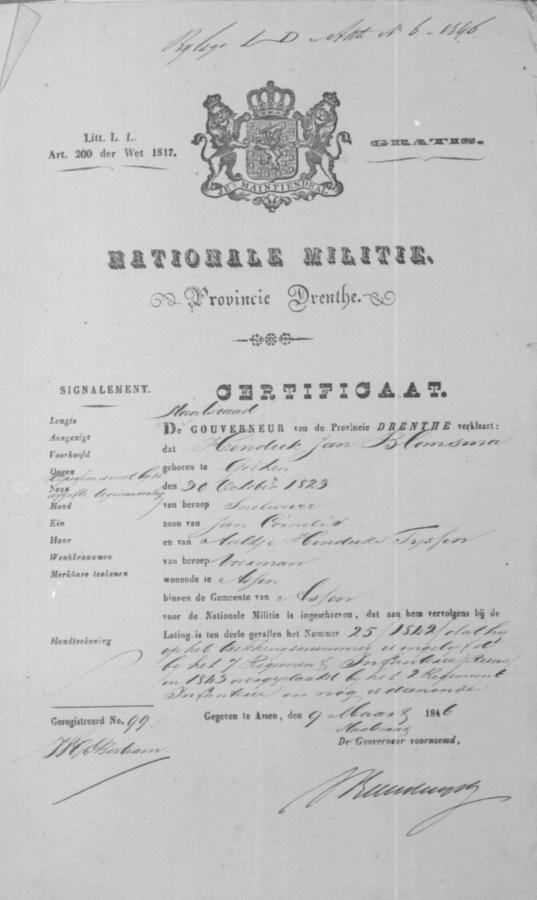 Bylage L D Akte N 6 - 1846
Litt. L. L.
Art. 200 der Wet 1817.
GRATIS.
JE MAINTIENDRAI
NATIONALE MILITIE.
Provincie Drenthe.
SIGNALEMENT.
CERTIFICAAT.
Staatsraad
De GOUVERNEUR van de Provincie DRENTHE verklaart:
Lengte
Aangezigt
Voorhoofd
Oogen
Neus
Mond
Kin
Haar
Wenkbraauwen
Merkbare teekenen
Handteekening
dat Hendrik Jan Blomsma
geboren te
den 30 October 1823
van beroep
zoon van Jan Cornelis
en van Aaltje Hendriks Tyssen
van beroep Voerman
wonende te Assen
binnen de Gemeente van Assen
voor de Nationale Militie is ingeschreven, dat aan hem vervolgens bij de
Loting is ten deele gevallen het Nommer 25/1842/ dat hy
op het trekkingsnummer is ingelyfd
by het 7 Regiment Infanterie
in 1843 overgeplaatst by het 2 Regiment
Infanterie en nog is dienende
Geregistreerd No. 99.
Gegeven te Assen, den 9 Maart 1846
Staatsraad
De Gouverneur voornoemd,